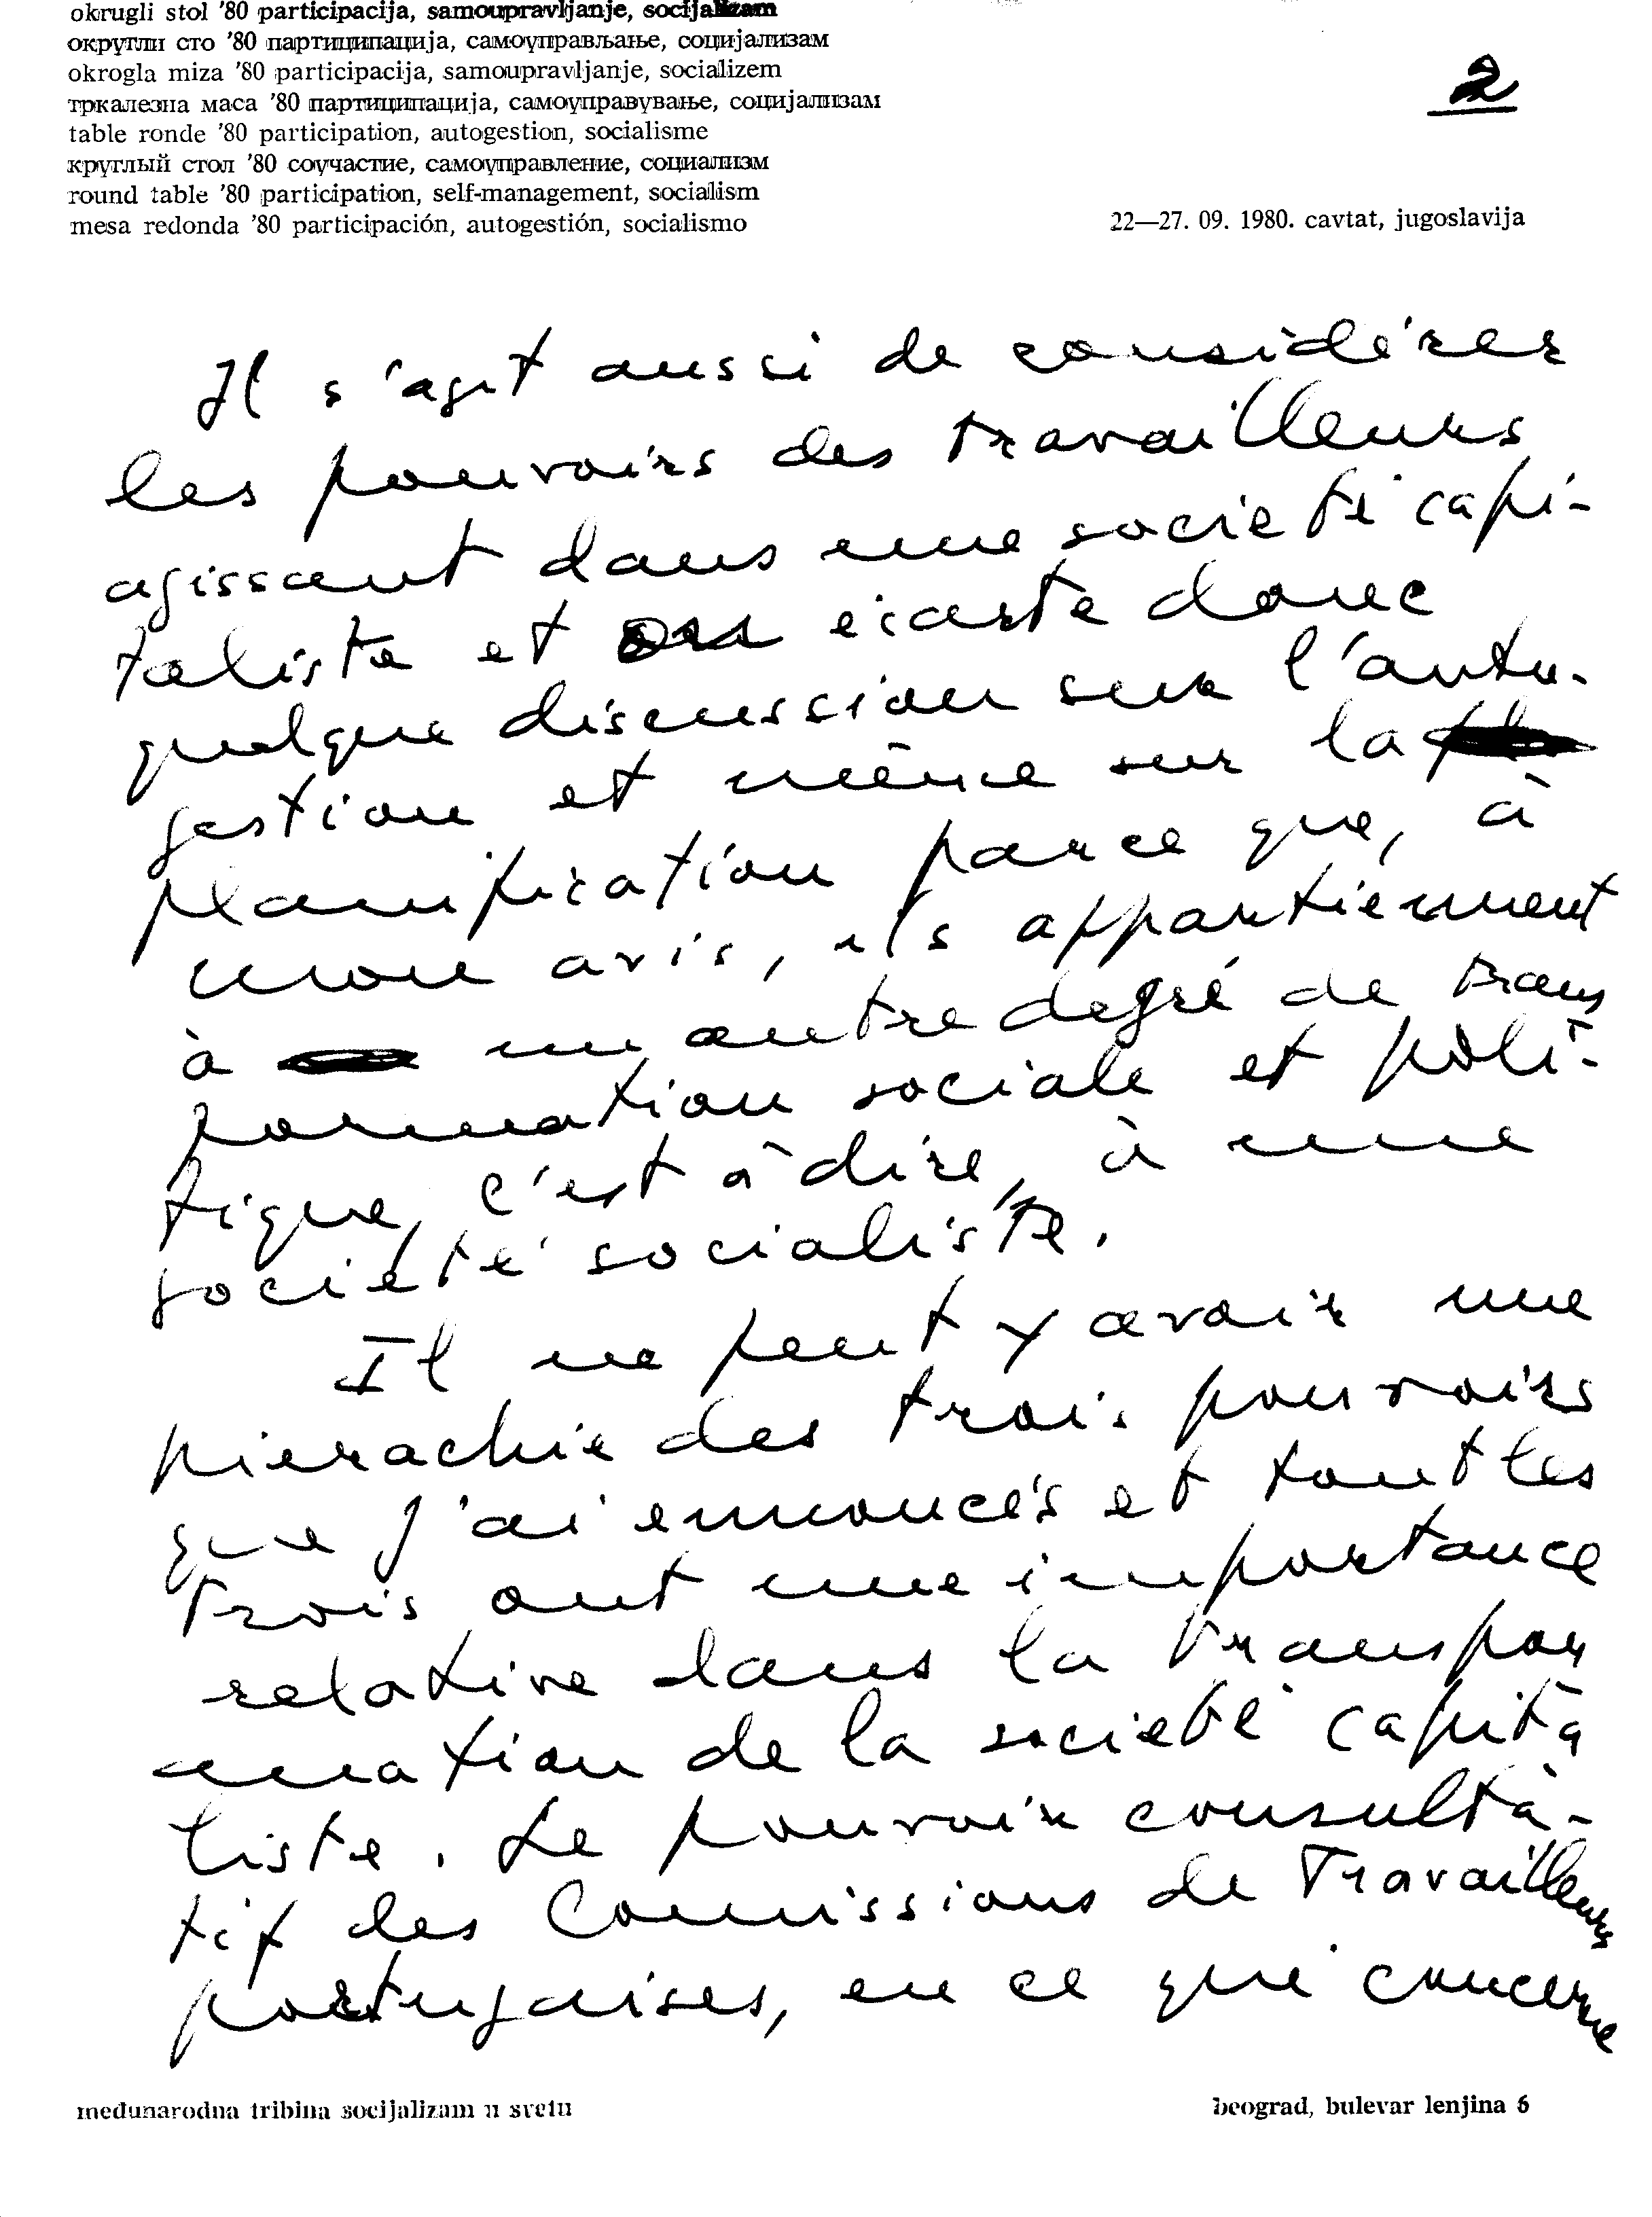 okrugli stol '80 participacija, samoupravljanje, socijalizam
округли сто '80 партиципација, самоуправљање, социјализам
okrogla miza '80 participacija, samoupravljanje, socializem
тркалезна маса '80 партиципација, самоуправување, социјализам
table ronde '80 participation, autogestion, socialisme
круглый стол '80 соучастие, самоуправление, социализм
round table '80 participation, self-management, socialism
mesa redonda '80 participación, autogestión, socialismo
2
22—27. 09. 1980. cavtat, jugoslavija
Il s'agit aussi de considérer
les pouvoirs des travailleurs
agissant dans une societé capi-
taliste et on écarte donc
quelque discussion sur l'auto-
gestion et même sur la
planification parce que, à
mon avis, ils appartiennent
à un autre degré de trans
formation sociale et poli-
tique, c'est à dire, à une
societé socialiste.
Il ne peut y avoir une
hierachie des trois pouvoirs
que j'ai ennoncés et tout les
trois ont une importance
relative dans la transfor
mation de la societé capita
liste. Le pouvoir consulta-
tif des Comissions de Travailleurs
portugaises, en ce qui concerne
međunarodna tribina socijalizam u svetu
beograd, bulevar lenjina 6